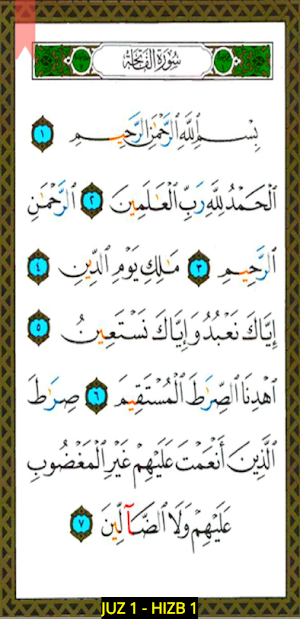 سُورَةُ الْفَاتِحَةِ
بِسْمِ اللَّهِ الرَّحْمَٰنِ الرَّحِيمِ ١
الْحَمْدُ لِلَّهِ رَبِّ الْعَالَمِينَ ٢ الرَّحْمَٰنِ
الرَّحِيمِ ٣ مَالِكِ يَوْمِ الدِّينِ ٤
إِيَّاكَ نَعْبُدُ وَإِيَّاكَ نَسْتَعِينُ ٥
اهْدِنَا الصِّرَاطَ الْمُسْتَقِيمَ ٦ صِرَاطَ
الَّذِينَ أَنْعَمْتَ عَلَيْهِمْ غَيْرِ الْمَغْضُوبِ
عَلَيْهِمْ وَلَا الضَّآلِّينَ ٧
JUZ 1 - HIZB 1